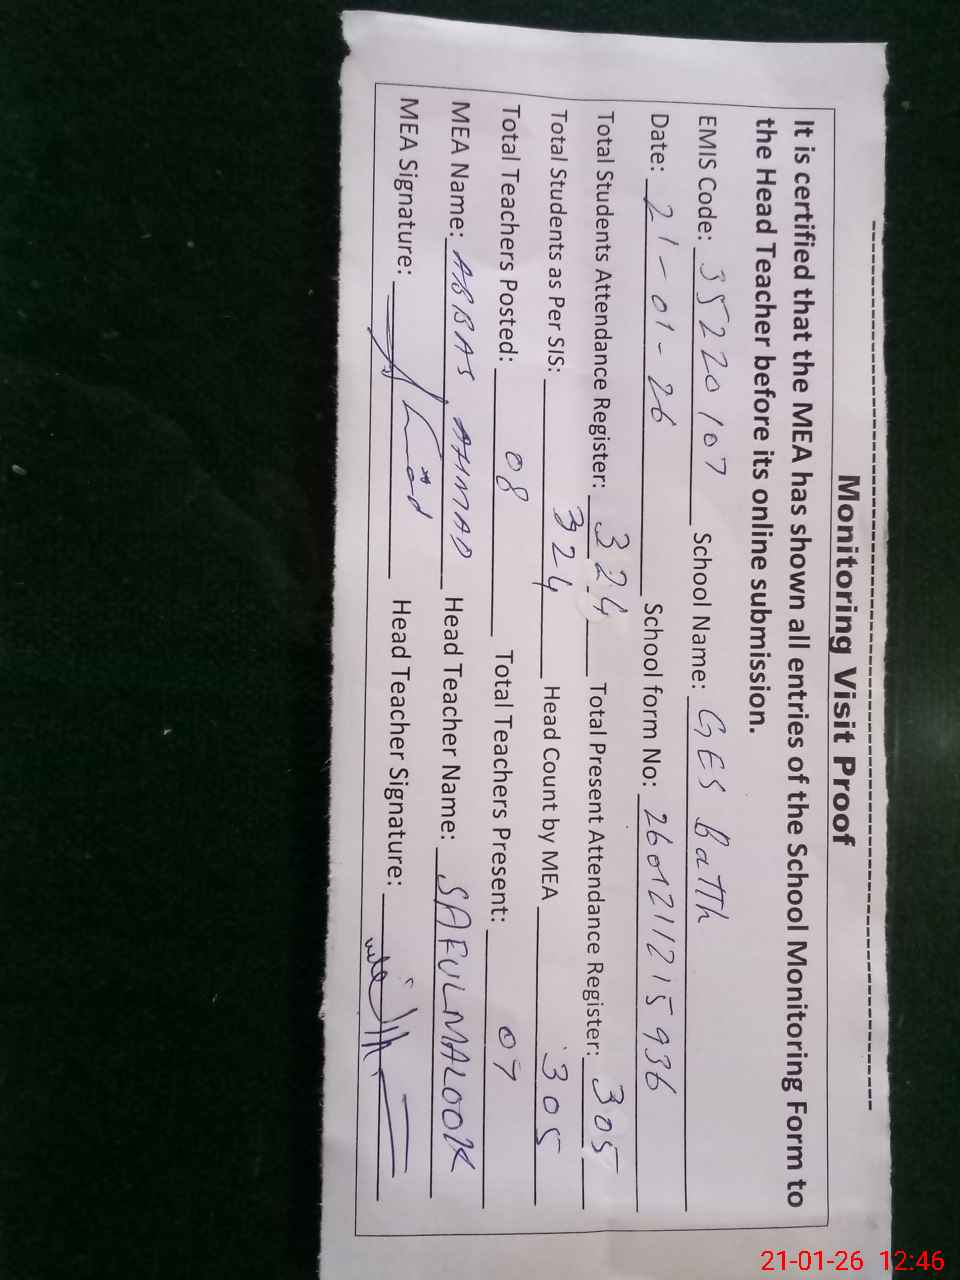 Monitoring Visit Proof
It is certified that the MEA has shown all entries of the School Monitoring Form to
the Head Teacher before its online submission.
EMIS Code: 35220107 School Name: GES Batth
Date: 21-01-26 School form No: 2601211215936
Total Students Attendance Register: 324 Total Present Attendance Register: 305
Total Students as Per SIS: 324 Head Count by MEA 305
Total Teachers Posted: 08 Total Teachers Present: 07
MEA Name: ABBAS AHMAD Head Teacher Name: SAFULMALOOK
MEA Signature: Head Teacher Signature:
21-01-26 12:46